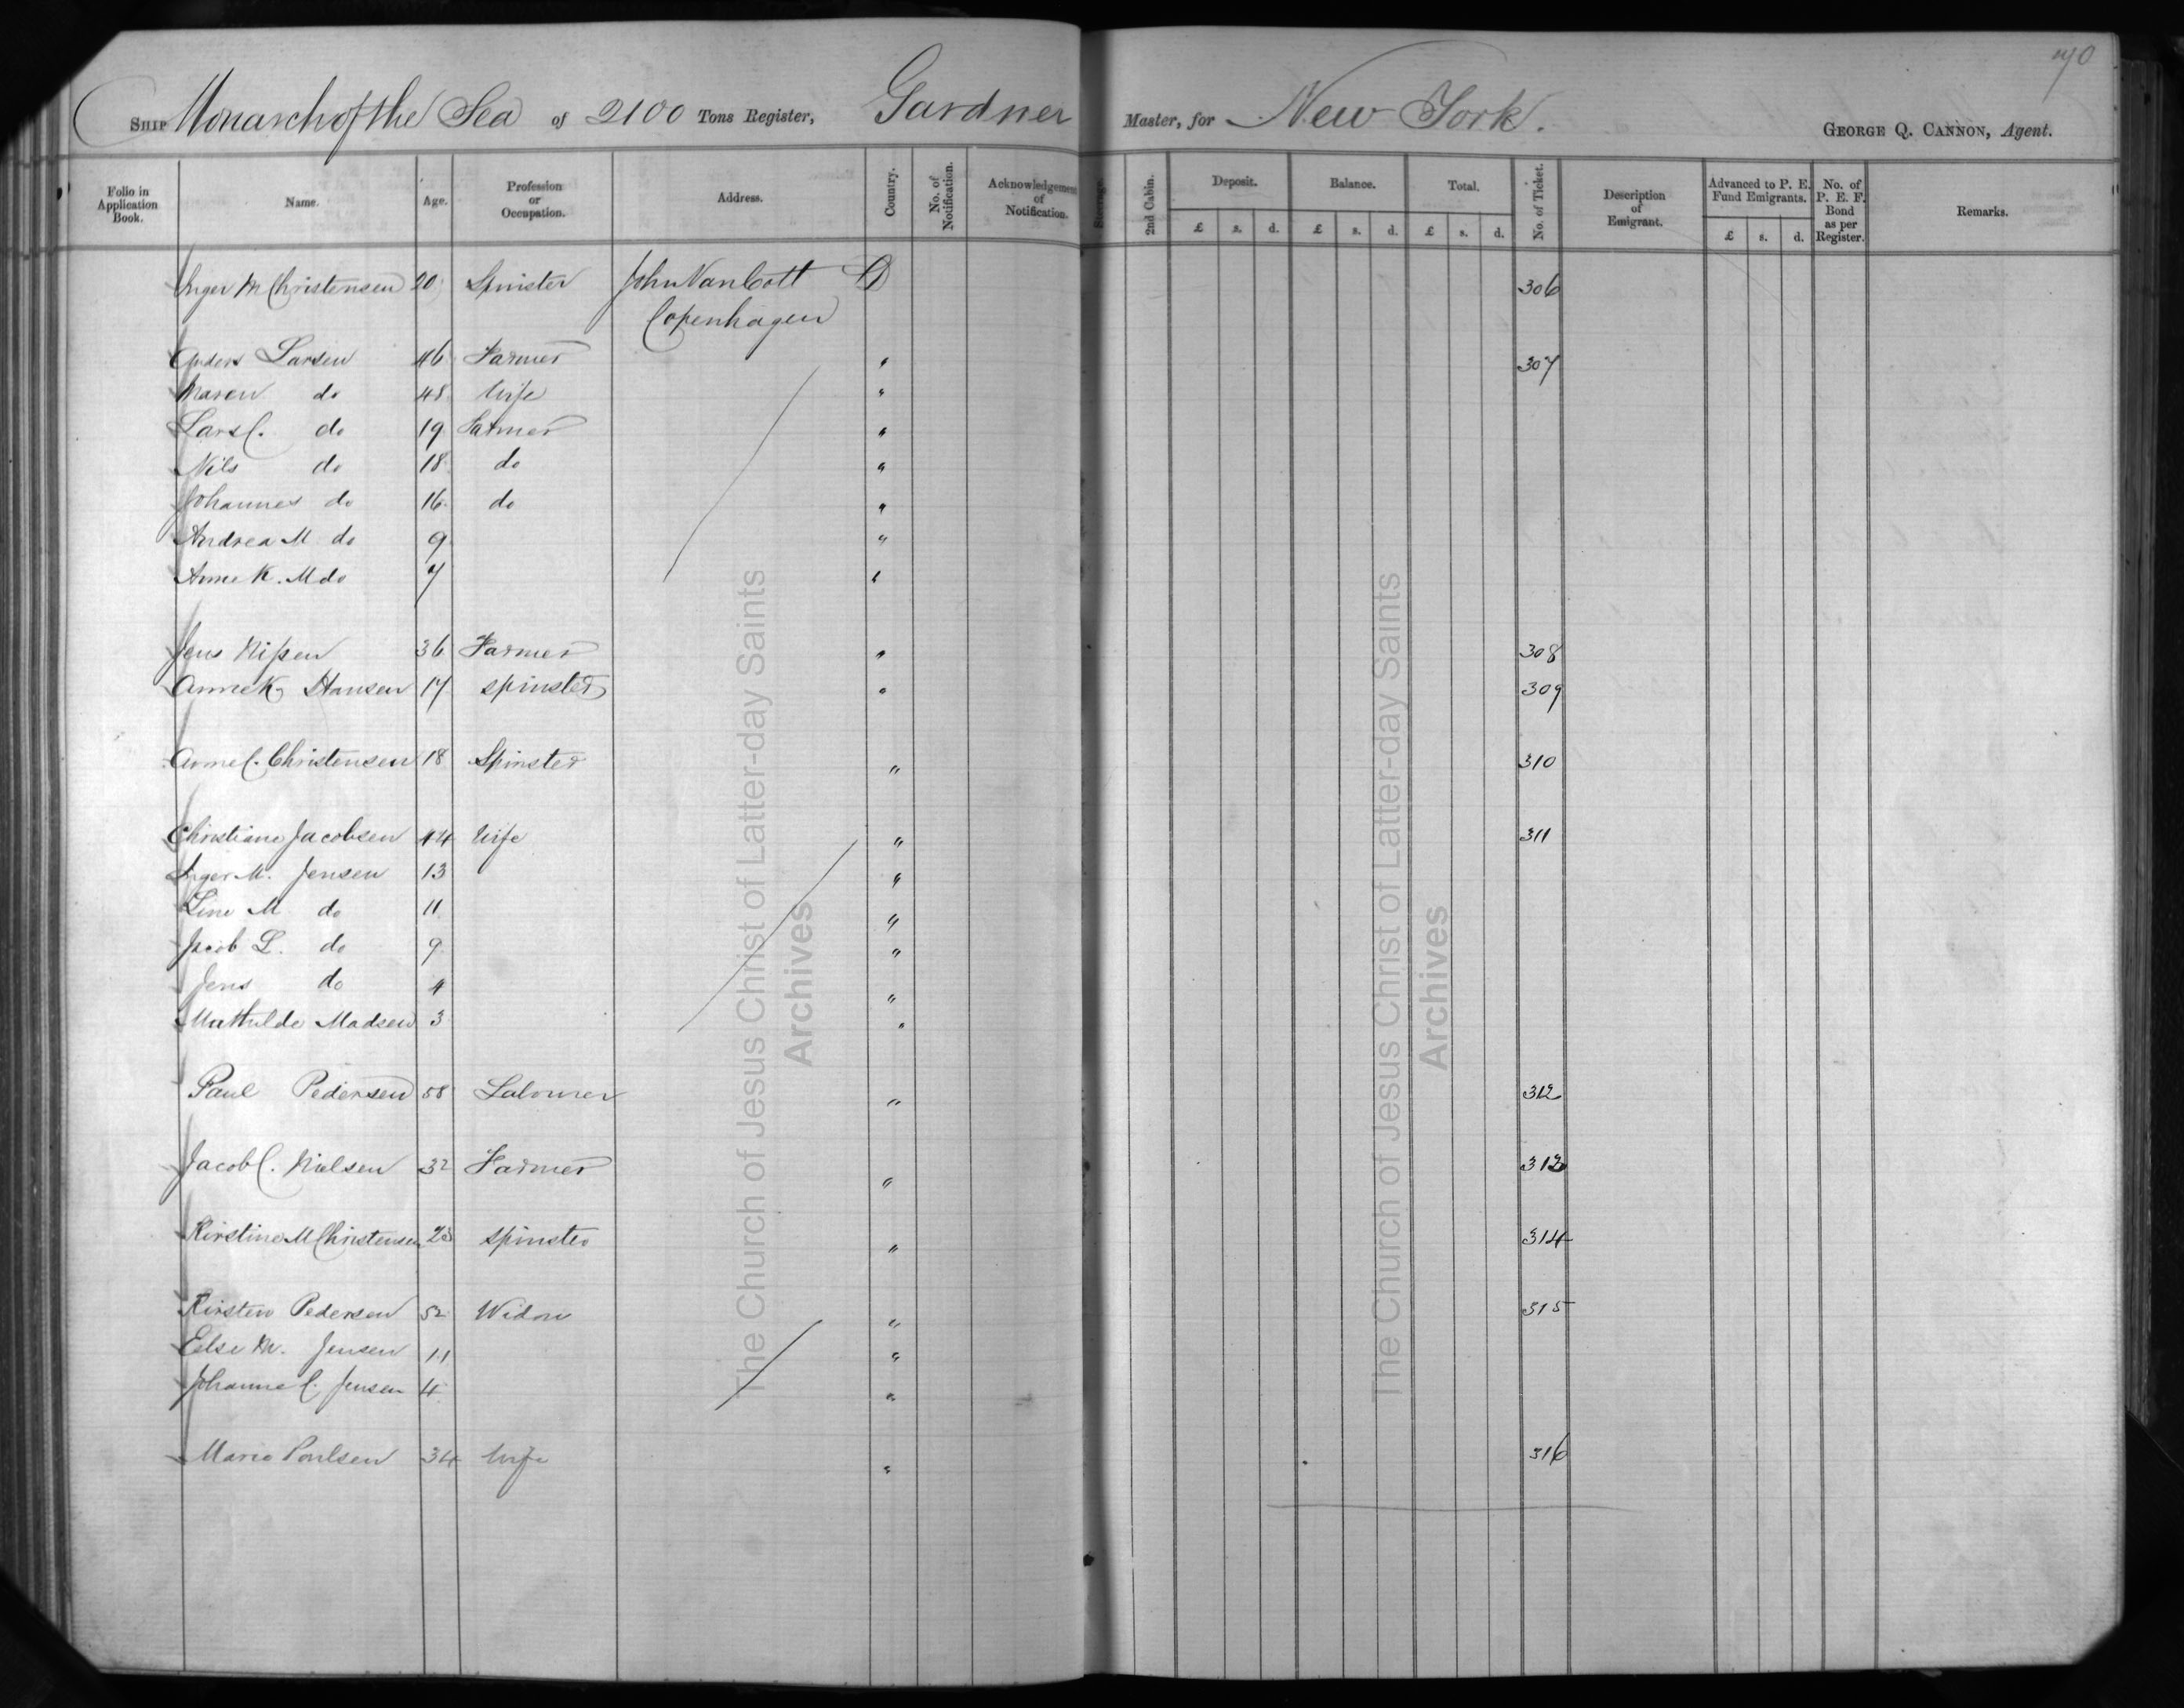 170
SHIP Monarch of the Sea of 2100 Tons Register, Gardner Master, for New York. GEORGE Q. CANNON, Agent.
Folio in Application Book. Name. Age. Profession or Occupation. Address. Country. No. of Notification. Acknowledgement of Notification. Steerage. 2nd Cabin. Deposit. Balance. Total. No. of Ticket. Description of Emigrant. Advanced to P. E. Fund Emigrants. No. of P. E. F. Bond as per Register. Remarks.
£ s. d. £ s. d. £ s. d. £ s. d.
Inger M Christensen 20 Spinster John Van Cott D 306
Copenhagen
Anders Larsen 46 Farmer " 307
Maren do 48 Wife "
Lars C. do 19 Farmer "
Nils do 18 do "
Johannes do 16 do "
Andrea M do 9 "
Anne K. M do 7 "
Jens Nissen 36 Farmer " 308
Anne K Hansen 17 Spinster " 309
Anne C. Christensen 18 Spinster " 310
Christiane Jacobsen 44 Wife " 311
Inger M. Jensen 13 "
Line M do 11 "
Jacob L. do 9 "
Jens do 4 "
Mathilde Madsen 3 "
Paul Pedersen 58 Labourer " 312
Jacob C. Nielsen 32 Farmer " 313
Kirstine M Christensen 23 Spinster " 314
Kirsten Pedersen 52 Widow " 315
Else M. Jensen 11 "
Johanne C. Jensen 4 "
Marie Poulsen 34 Wife " 316
The Church of Jesus Christ of Latter-day Saints
Archives
The Church of Jesus Christ of Latter-day Saints
Archives